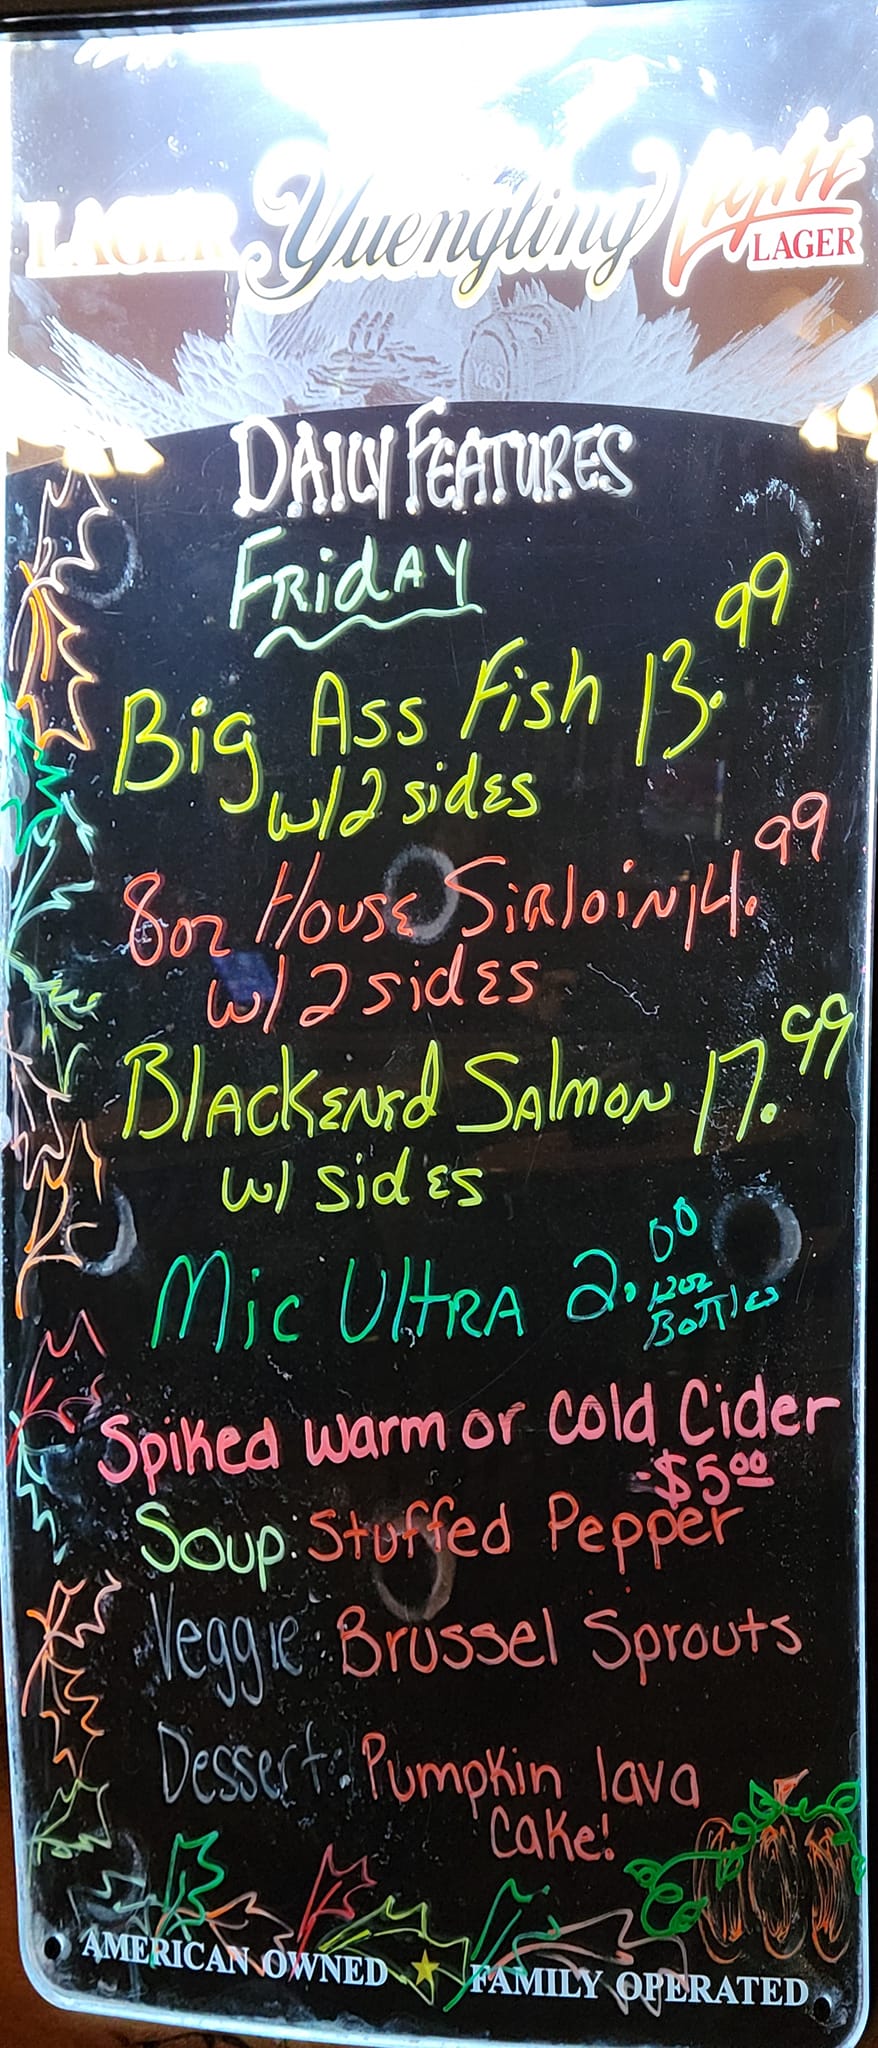 LAGER Yuengling Light LAGER
Y&S
DAILY FEATURES
FRIDAY
Big Ass Fish 13.99
w/2 sides
8oz House Sirloin 14.99
w/2 sides
Blackened Salmon 17.99
w/ sides
Mic Ultra 2.00
12oz
Bottles
Spiked warm or cold Cider
-$5.00
Soup: Stuffed Pepper
Veggie: Brussel Sprouts
Dessert: Pumpkin lava
cake!
AMERICAN OWNED ★ FAMILY OPERATED